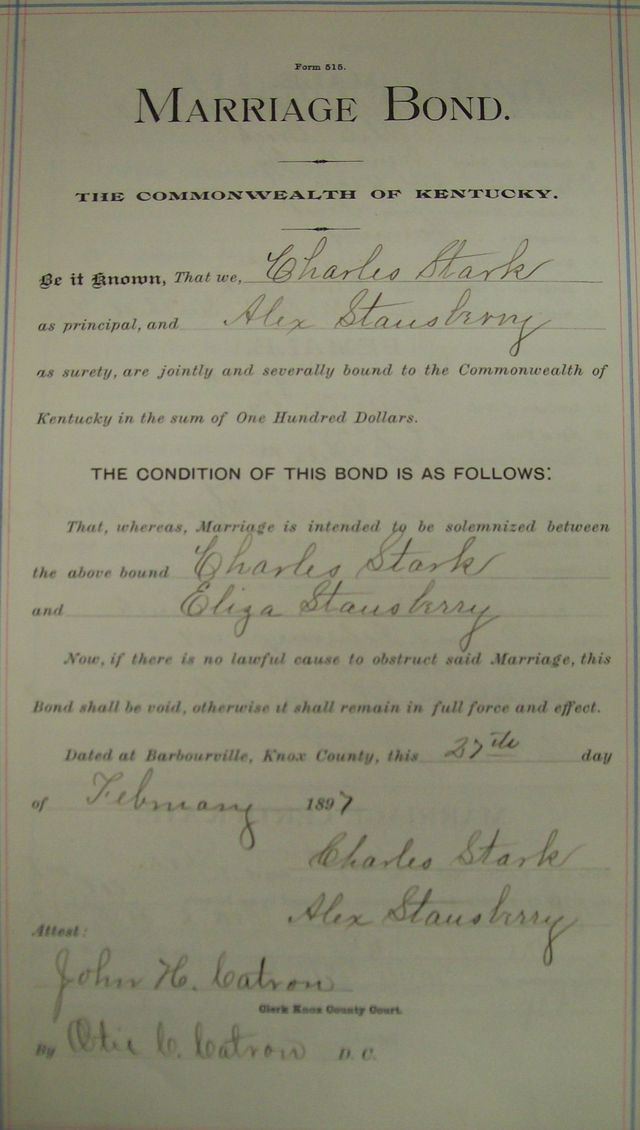 Form 515.
MARRIAGE BOND.
THE COMMONWEALTH OF KENTUCKY.
Be it Known, That we, Charles Stark
as principal, and Alex Stausberry
as surety, are jointly and severally bound to the Commonwealth of
Kentucky in the sum of One Hundred Dollars.
THE CONDITION OF THIS BOND IS AS FOLLOWS:
That, whereas, Marriage is intended to be solemnized between
the above bound Charles Stark
and Eliza Stausberry
Now, if there is no lawful cause to obstruct said Marriage, this
Bond shall be void, otherwise it shall remain in full force and effect.
Dated at Barbourville, Knox County, this 27th day
of February 1897
Charles Stark
Alex Stausberry
Attest:
John H. Catron
Clerk Knox County Court.
By C. Catron D. C.